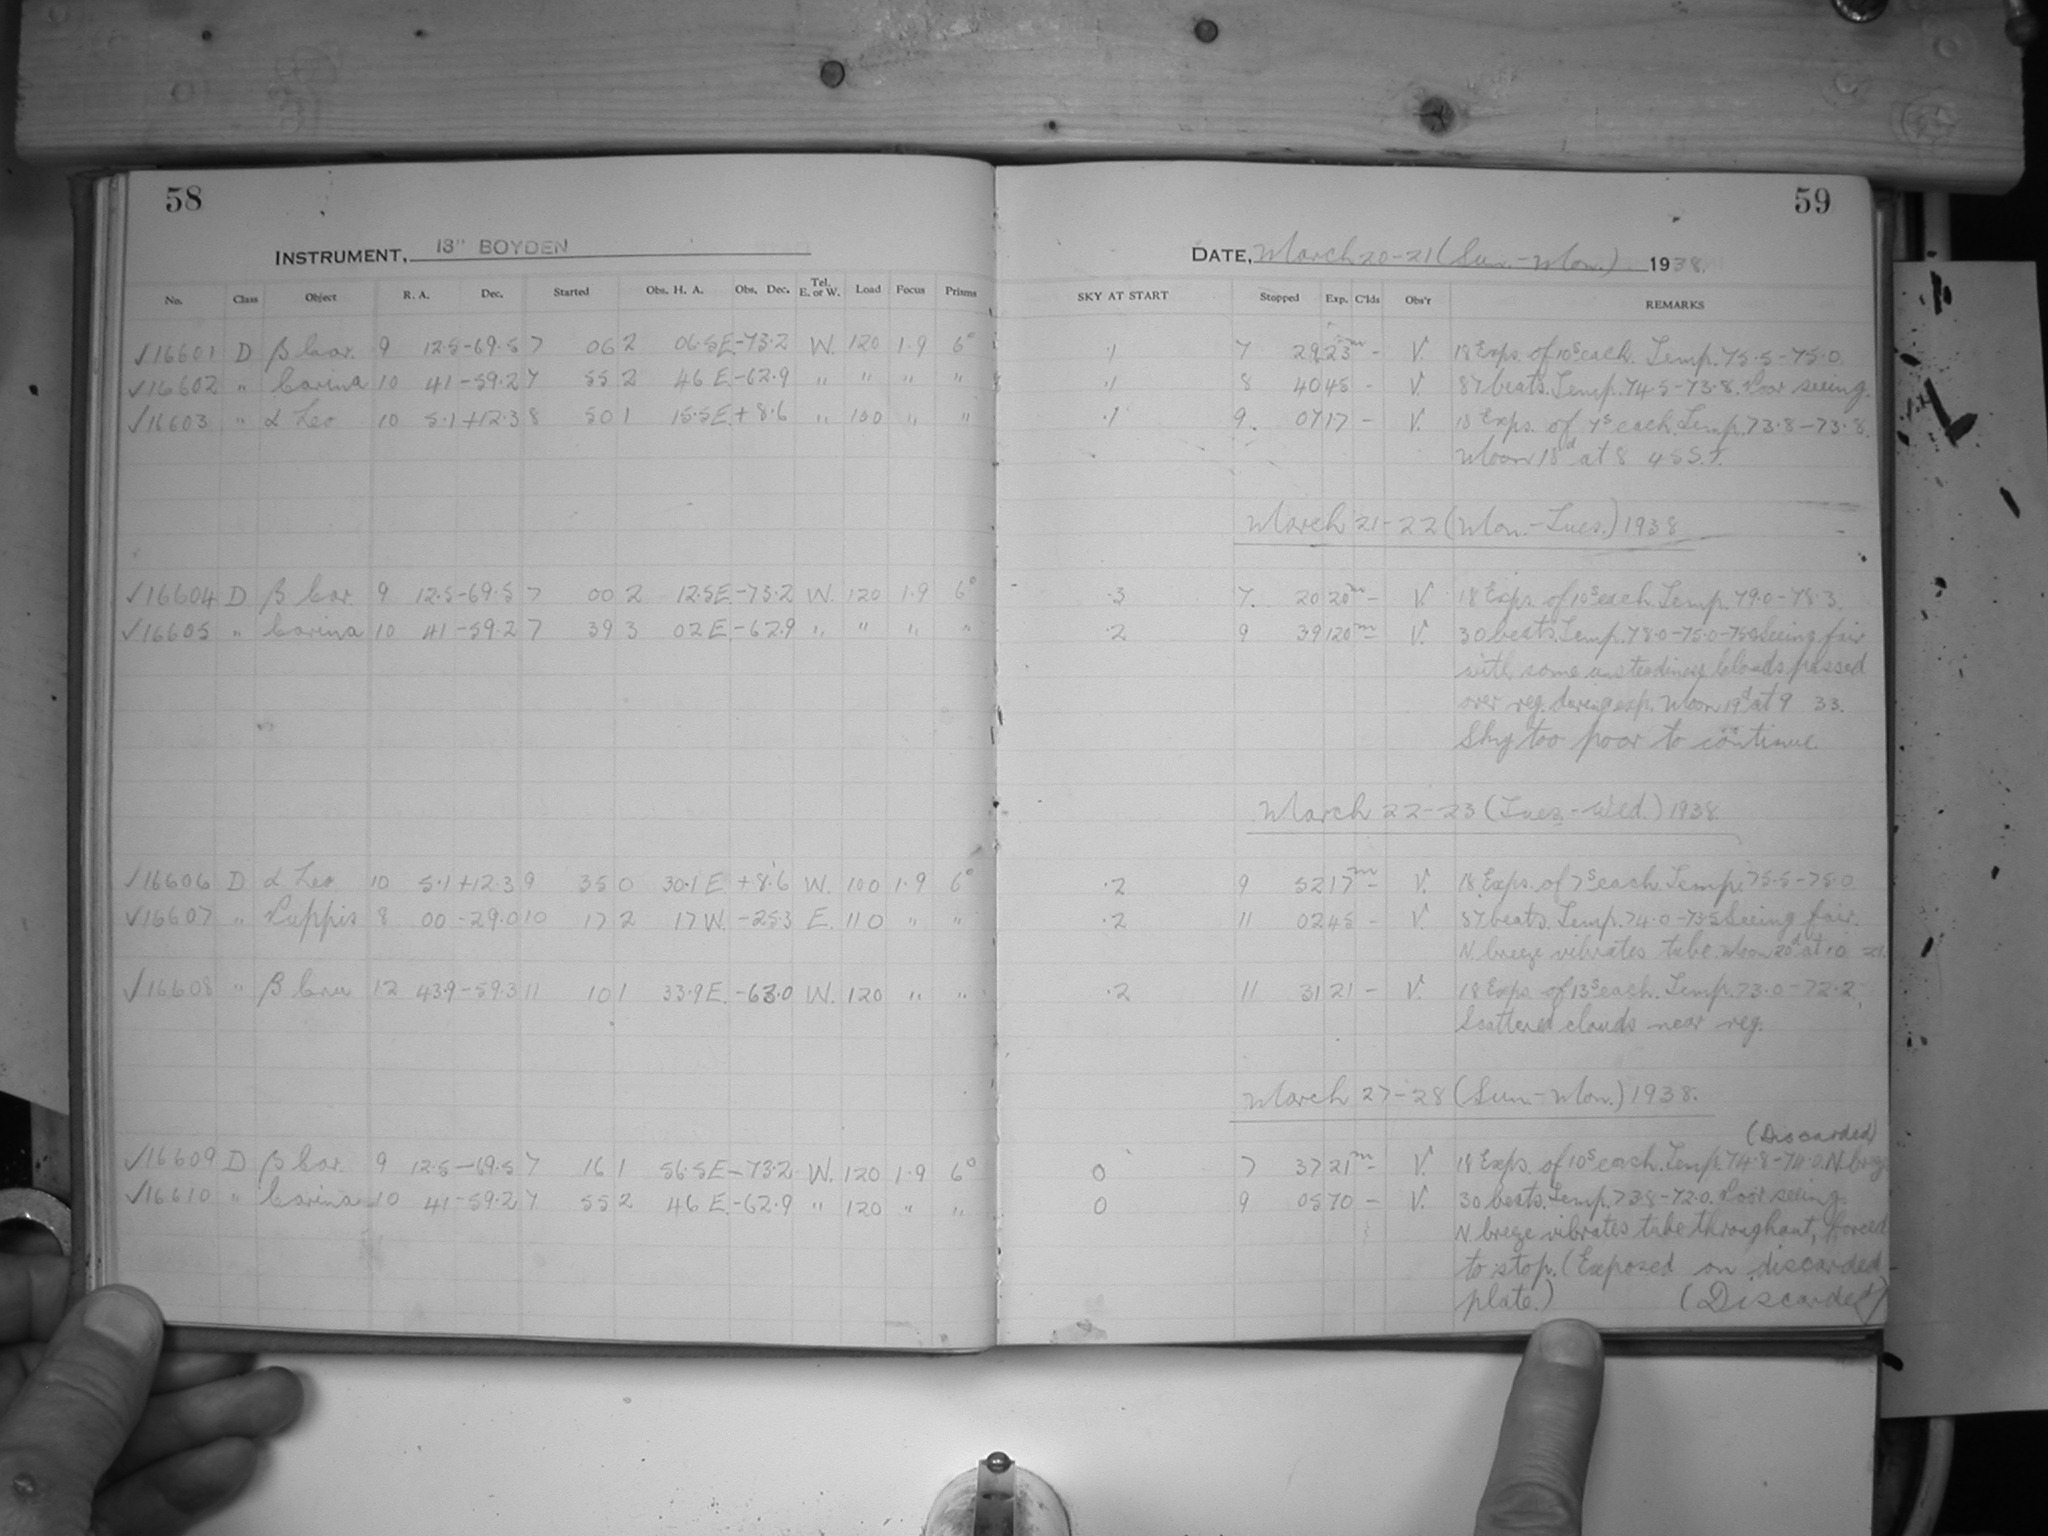 58
INSTRUMENT, 13" BOYDEN
No. Class Object R. A. Dec. Started Obs. H. A. Obs. Dec. Tel. E. or W. Load Focus Prisms
√16601 D β Car. 9 12.5 -69.5 7 06 2 06.5E. -73.2 W. 120 1.9 6°
√16602 " Carina 10 41 -59.2 7 55 2 46 E. -62.9 " " " "
√16603 " α Leo 10 5.1 +12.3 8 50 1 15.5E. +8.6 " 100 " "
√16604 D β Car. 9 12.5 -69.5 7 00 2 12.5E. -73.2 W. 120 1.9 6°
√16605 " Carina 10 41 -59.2 7 39 3 02 E. -62.9 " " " "
√16606 D α Leo 10 5.1 +12.3 9 35 0 30.1 E. +8.6 W. 100 1.9 6°
√16607 " Puppis 8 00 -29.0 10 17 2 17 W. -25.3 E. 110 " "
√16608 " β Cru 12 43.9 -59.3 11 10 1 33.9E. -63.0 W. 120 " "
√16609 D β Car. 9 12.5 -69.5 7 16 1 56.5E -73.2 W. 120 1.9 6°
√16610 " Carina 10 41 -59.2 7 55 2 46 E. -62.9 " 120 " "
59
DATE, March 20-21 (Sun.-Mon.) 1938.
SKY AT START Stopped Exp. C'lds Obs'r REMARKS
.1 7 29 23m - V. 18 Exps. of 10s each. Temp. 75.5-75.0
" 8 40 45 - V. 87 beats. Temp. 74.5-73.8. Poor seeing.
.1 9. 07 17 - V. 18 Exps. of 7s each. Temp. 73.8-73.8.
Moon 18d at 8 45 S.T.
March 21-22 (Mon.-Tues.) 1938
.3 7. 20 20m - V. 18 Exps. of 10s each. Temp. 79.0-78.3.
.2 9 39 120m - V. 30 beats. Temp. 78.0-75.0- Seeing fair
with some unsteadiness Clouds passed
over reg. during exp. Moon 19d at 9 33.
Sky too poor to continue.
March 22-23 (Tues.-Wed.) 1938.
.2 9 52 17m - V. 18 Exps. of 7s each. Temp. 75.5-75.0
.2 11 02 45 - V. 87 beats. Temp. 74.0-73.5 Seeing fair.
N. breeze vibrates tube. Moon 20d at 10 21.
.2 11 31 21 - V. 18 Exps. of 13s each. Temp. 73.0-72.2,
Scattered clouds near reg.
March 27-28 (Sun.-Mon.) 1938.
(Discarded)
0 7 37 21m - V. 18 Exps. of 10s each. Temp. 74.8-74.0. N. breeze
0 9 05 70 - V. 30 beats. Temp. 73.8-72.0. Poor seeing.
N. breeze vibrates tube throughout, forced
to stop. (Exposed on discarded
plate.) (Discarded)